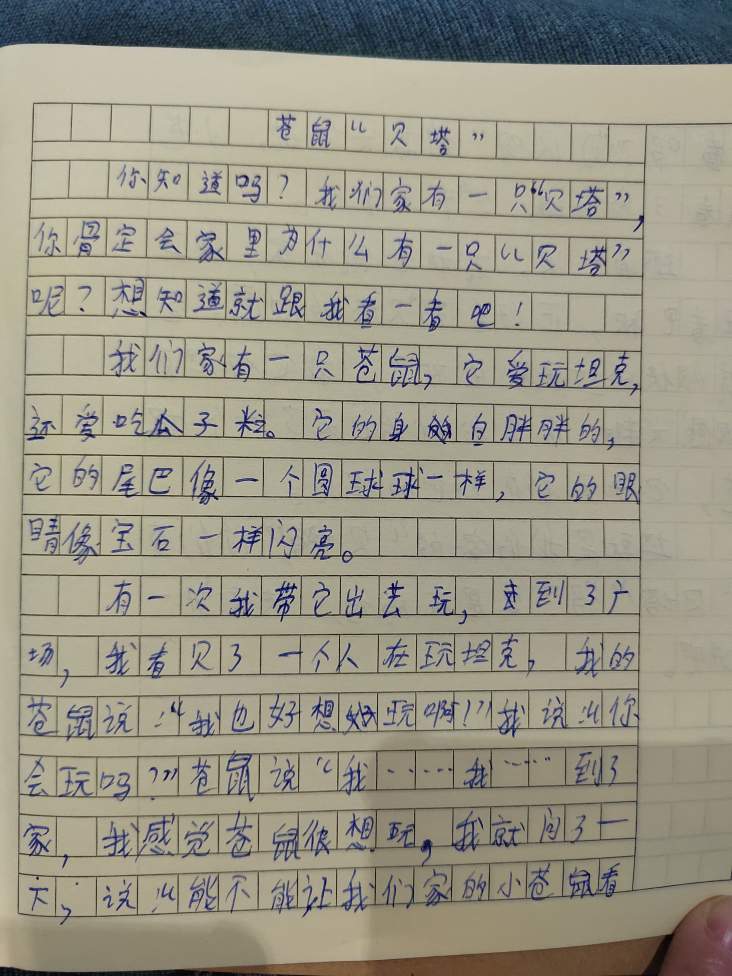 苍鼠“贝塔”
你知道吗？我们家有一只“贝塔”，
你骨定会家里为什么有一只“贝塔”
呢？想知道就跟我看一看吧！
我们家有一只苍鼠，它爱玩坦克，
还爱吃瓜子粒。它的身 白胖胖的，
它的尾巴像一个圆球球一样，它的眼
睛像宝石一样闪亮。
有一次我带它出去玩，走到了广
场，我看贝了一个人在玩坦克，我的
苍鼠说：“我也好想 玩啊！”我说：“你
会玩吗？”苍鼠说“我……我……到了
家，我感觉苍鼠很想玩，我就问了一
下，说：“能不能让我们家的小苍鼠看